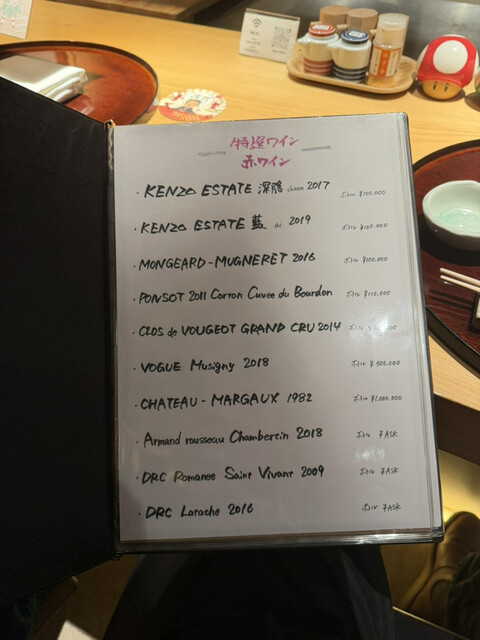 特選ワイン
赤ワイン
・KENZO ESTATE 深隠 shinon 2017 ボトル ¥100,000
・KENZO ESTATE 藍 ai 2019 ボトル ¥100,000
・MONGEARD-MUGNERET 2016 ボトル ¥100,000
・PONSOT 2011 Corton Cuvee du Bourdon ボトル ¥110,000
・CLOS de VOUGEOT GRAND CRU 2014 ボトル
・VOGUE Musigny 2018 ボトル ¥500,000
・CHATEAU-MARGAUX 1982 ボトル ¥1,000,000
・Armand rousseau Chambercin 2018 ボトル ¥ASK
・DRC Romanee Saint Vivant 2009 ボトル ¥ASK
・DRC Larache 2016 ボトル ¥ASK